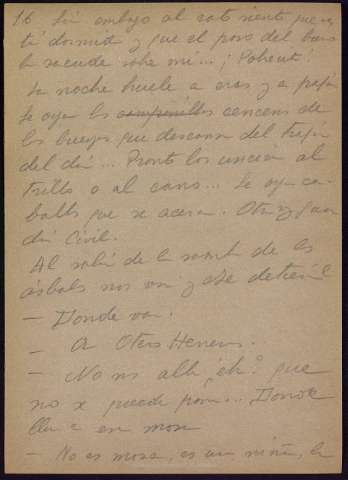 16 Sin embargo al rato siento que
tá dormida y que el paso del
la sacude sobre mi... ¡Pobecita!
La noche huele a eras y a paja
Se oyen los campanillos cencerros de
los bueyes que descansan del trajín
del día... Pronto los uncirán al
trillo o al carro... Se oyen ca-
ballos que se acercan. Otra guar
dia Civil.
Al salir de la sombra de los
árboles nos ven y se detienen
— Donde van.
— A Otero Herreros.
— No ... allí ¿eh? que
no se puede pasar... Donde
lleva en mosa
— No es mosa, es una niña, la